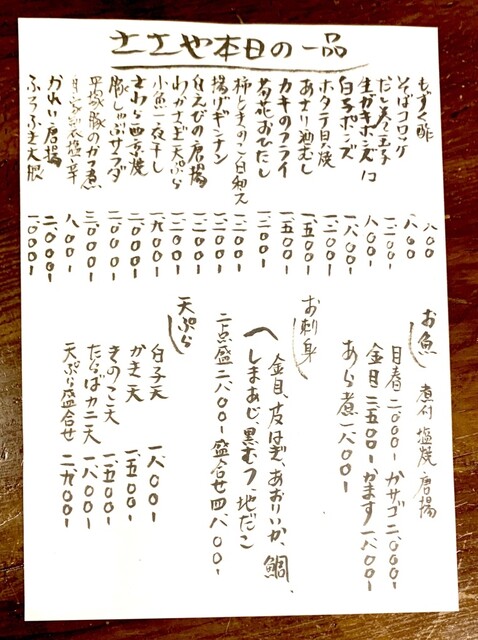 ささや本日の一品
もずく酢 八〇〇
そばコロッケ 八〇〇
だし巻玉子 一、二〇〇
生ガキポン酢 八〇〇
白子ポンズ 一、八〇〇
ホタテ貝焼 一、二〇〇
あさり酒むし 一、五〇〇
カキのフライ 一、五〇〇
菊花おひたし 一、二〇〇
柿ときのこ日和え 一、二〇〇
揚げギンナン 一、二〇〇
白えびの唐揚 一、二〇〇
わかさぎ天ぷら 一、二〇〇
小魚一夜干し 一、九〇〇
さわら西京焼 二、〇〇〇
豚しゃぶサラダ 二、〇〇〇
平塚豚のガツ煮 三、〇〇〇
塩辛 八〇〇
かれい唐揚 二、〇〇〇
ふろふき大根 一、〇〇〇
お魚 煮付 塩焼 唐揚
目春 二、〇〇〇 カサゴ 二、〇〇〇
金目 二、五〇〇 かます 一、八〇〇
あら煮 一、八〇〇
お刺身
金目、皮はぎ、あおりいか、鯛、
しまあじ、黒むつ、地だこ
二点盛 二、八〇〇 盛合せ 四、八〇〇
天ぷら
白子天 一、八〇〇
かき天 一、五〇〇
きのこ天 一、五〇〇
たらばカニ天 一、八〇〇
天ぷら盛合せ 二、九〇〇